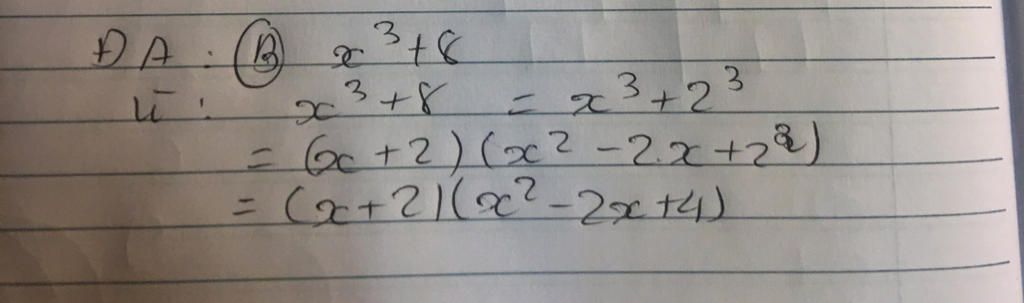 ĐA : Ⓑ x³+8
Vì : x³+8 = x³+2³
= (x+2)(x²-2.x+2²)
= (x+2)(x²-2x+4)